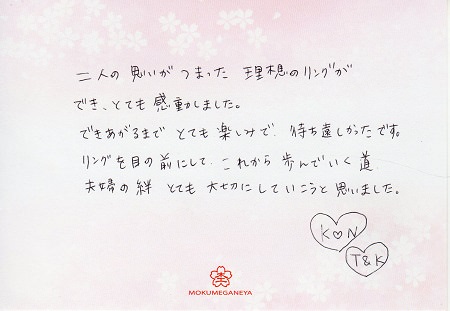 二人の思いがつまった 理想のリングが
でき、とても感動しました。
できあがるまで とても楽しみで、待ち遠しかったです。
リングを目の前にして、これから歩んでいく道
夫婦の絆 とても大切にしていこうと思いました。
K♡N
T&K
MOKUMEGANEYA